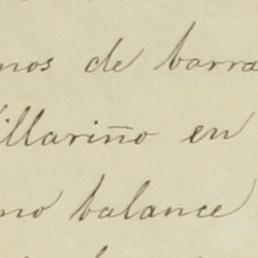 mos de barra
illariño en
no balance